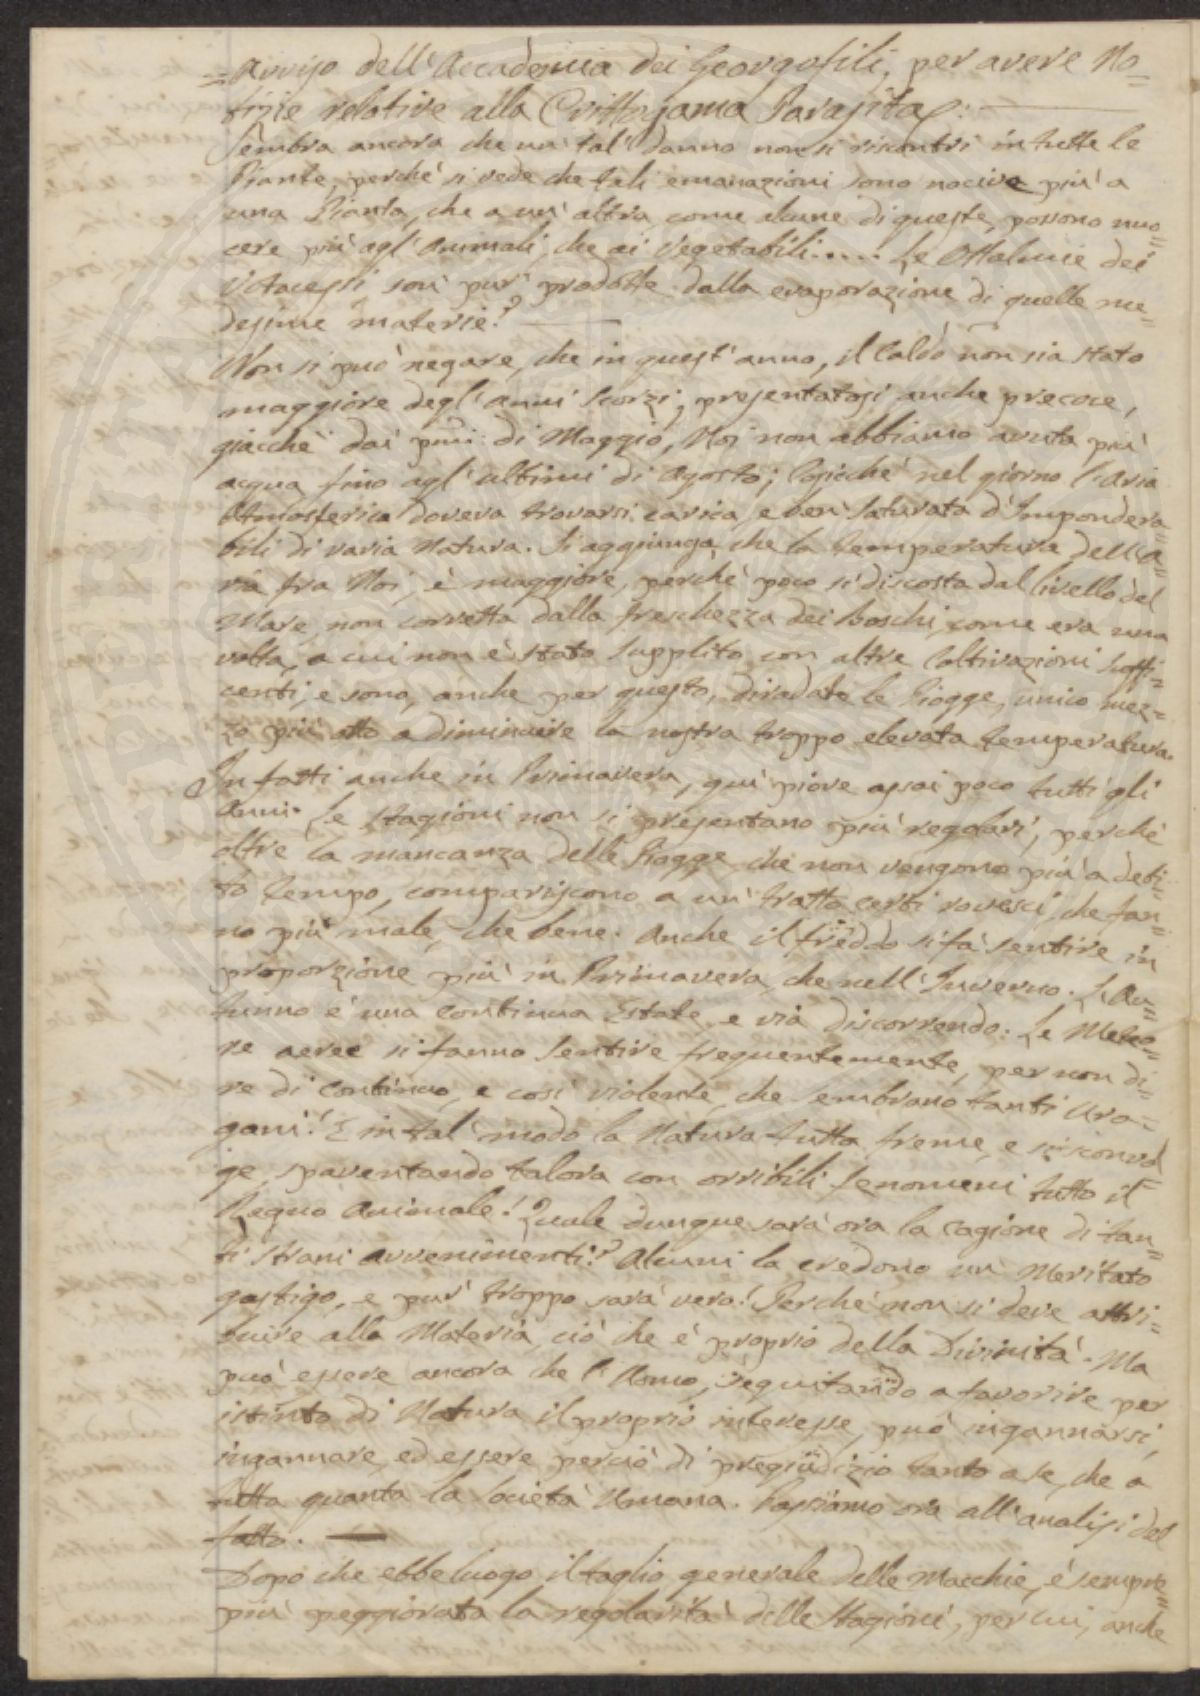 = Avviso dell'Accademia dei Georgofili, per avere No=
tizie relative alla Crittogama Parasita =:
Sembra ancora che un tal danno non si riscontri in tutte le
Piante, perchè si vede che tali emanazioni sono nocive più a
una Pianta, che a un'altra, come alcune di queste, possono nuo=
cere più agl'Animali, che ai Vegetabili..... Le Ottalmie dei
son pur prodotte dalla evaporazione di quelle me=
desime materie? —
Non si può negare, che in quest'anno, il Caldo non sia stato
maggiore degl'Anni scorsi, presentatosi anche precoce,
giacchè dai pmi di Maggio, Noi non abbiamo avuta più
acqua fino agl'ultimi di Agosto; cosicchè nel giorno l'Aria
Atmosferica doveva trovarsi carica, e ben saturata d'Impondera
bili di varia Natura. Si aggiunga, che la Temperatura dell'A=
ria fra Noi, è maggiore, perchè poco si discosta dal livello del
Mare, non corretta dalla freschezza dei boschi, come era una
volta, a cui non è stato supplito con altre Coltivazioni suffi=
centi, e sono, anche per questo, diradate le Piogge, unico mez=
zo più atto a diminuire la nostra troppo elevata temperatura.
Infatti anche in Primavera, quì piove assai poco tutti gli
Anni. Le stagioni non si presentano più regolari, perchè
oltre la mancanza delle Piogge che non vengono più a debi=
to tempo, compariscono a un tratto certi rovesci, che fan=
no più male, che bene. Anche il freddo si fà sentire in
proporzione più in Primavera, che nell'Inverno. L'Au=
tunno è una continua Estate, e via discorrendo. Le Meteo=
re aeree si fanno sentire frequentemente, per non di=
re di continuo, e così violente, che sembrano tanti Ura=
gani! E in tal modo la Natura tutta freme, e si sconvol=
ge, spaventando talora con orribili fenomeni tutto il
Regno Animale! Quale dunque sarà ora la cagione di tan=
ti strani avvenimenti? Alcuni la credono un Meritato
gastigo, e pur troppo sarà vero! Perchè non si deve attri=
buire alla Materia, ciò che è proprio della Divinità. Ma
può essere ancora che l'Uomo, seguitando a favorire per
istinto di Natura il proprio interesse, può ingannarsi,
ingannare, ed essere perciò di pregiudizio tanto a se, che a
tutta quanta la Società Umana. Passiamo ora all'analisi del
fatto. —
Dopo che ebbe luogo il taglio generale delle Macchie, è sempre
più peggiorata la regolarità delle Stagioni, per cui, anche